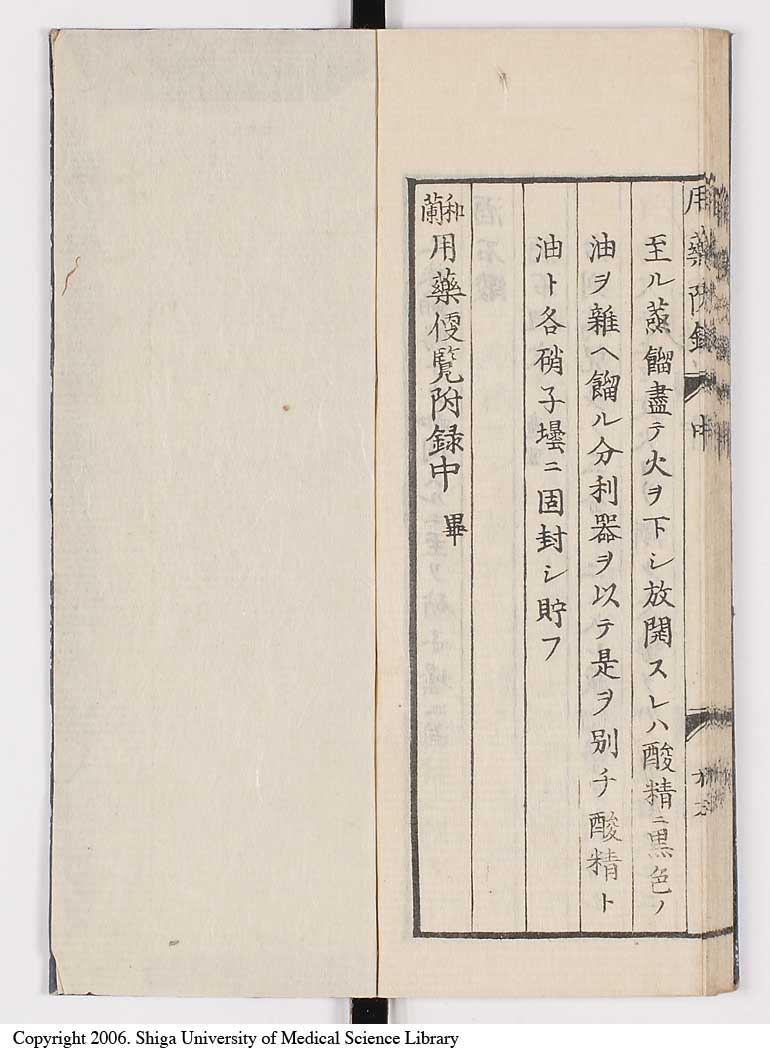 至ル蒸餾盡テ火ヲ下シ放開スレハ酸精ニ黒色ノ
油ヲ雜ヘ餾ル分利器ヲ以テ是ヲ別チ酸精ト
油ト各硝子壜ニ固封シ貯フ
和蘭用藥便覧附録中 畢
用藥附録 中
Copyright 2006. Shiga University of Medical Science Library